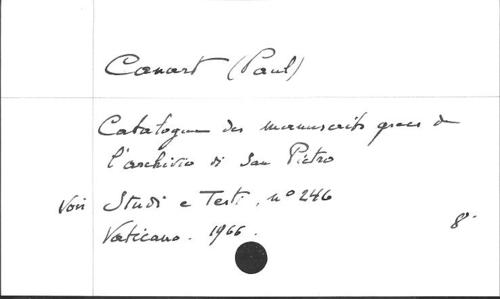 Canart (Paul)
Catalogue des manuscrits grecs de
l'archivio di San Pietro
Voir Studi e Testi, nº 246
Vaticano. 1966. 8º.